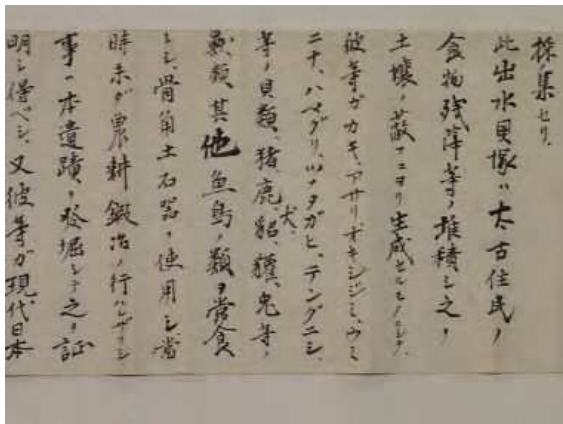 採集セリ、
此出水貝塚ハ太古住民ノ
食物残滓等ノ堆積シ之ノ
土壌ノ蔽フニヨリ生成セルモノニシテ、
彼等ガカキ、アサリ、オキシジミ、ウミ
ニナ、ハマグリ、ツメタガヒ、テングニシ、
等ノ貝類、猪、鹿、犬、貂、獾、兎等ノ
獣類、其他魚鳥ノ類ヲ常食
トシ、骨角土石器ヲ使用シ、当
時未ダ農耕鍛冶ノ行ハレザリシ
事ハ本遺蹟ヲ發堀シテ之ヲ証
明シ得ベシ、又彼等ガ現代日本